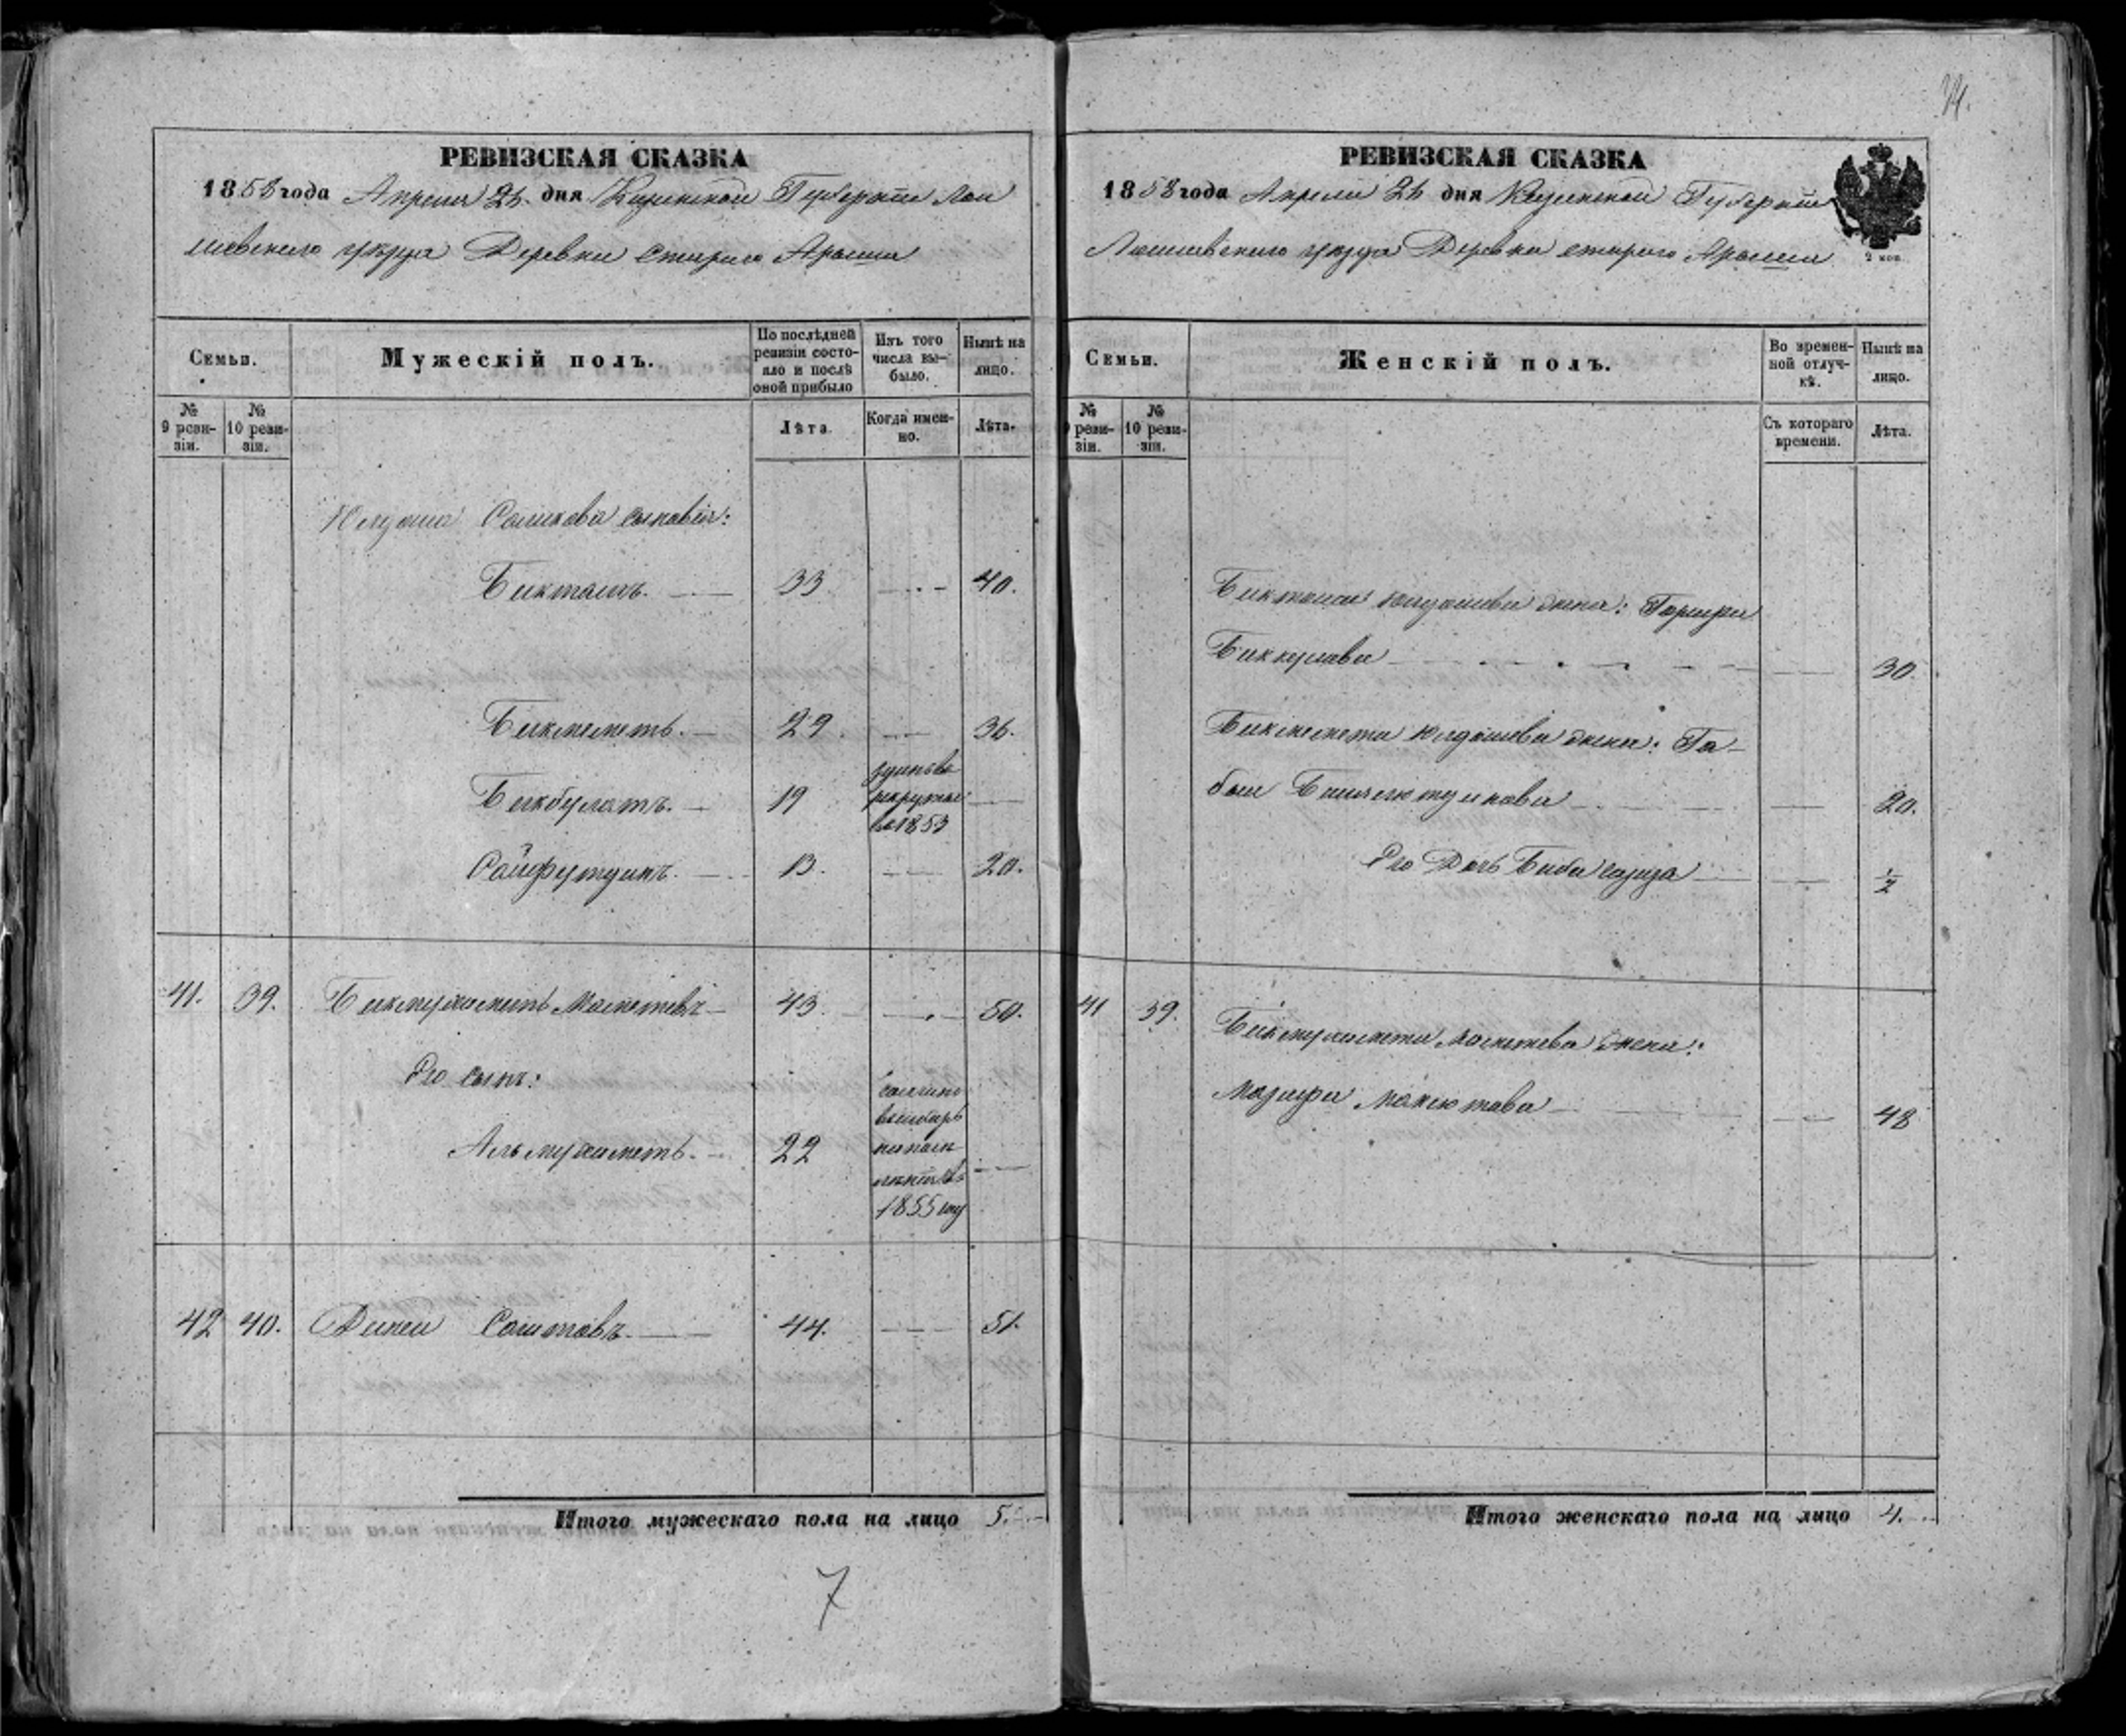 34.
РЕВИЗСКАЯ СКАЗКА
1858 года Апреля 26 дня Казанской Губернiи Лаи
шевскаго уезда Деревни Стараго Арыша
Семьи.
Мужескiй полъ.
По послѣдней ревизiи состо-
яло и послѣ
оной прибыло
Изъ того
числа вы-
было.
Нынѣ на
лицо.
№
9 реви-
зiи.
№
10 реви-
зiи.
Лѣта
Когда имен-
но.
Лѣта.
Юлдаша Салихова сыновья:
Бикташъ. 33 40.
Бикмеметь. 29 36.
Бикбулатъ. 19 рекруты въ 1853
Сайфутдинъ. 13. 20.
41. 39. Бикмухаметь Маметевъ 43. 50.
Его сынъ:
Альмухаметь. 22
1855 году
42 40. Динеи Саитовъ 44. 51.
Итого мужескаго пола на лицо 5.
7
РЕВИЗСКАЯ СКАЗКА
1858 года Апреля 26 дня Казанской Губернiи
Лаишевскаго уезда Деревни Стараго Арыша
2 коп.
Семьи.
Женскiй полъ.
Во времен-
ной отлуч-
кѣ.
Нынѣ на
лицо.
№
реви-
зiи.
№
10 реви-
зiи.
Съ котораго
времени.
Лѣта.
Бикташа Юлдашева жена:
Биккулова 30.
Бикмемета Юлдашева жена: Га-
20.
Его Дочь Биби 1/2
41 39. Бикмухамета Маметева жена:
48
Итого женскаго пола на лицо 4.